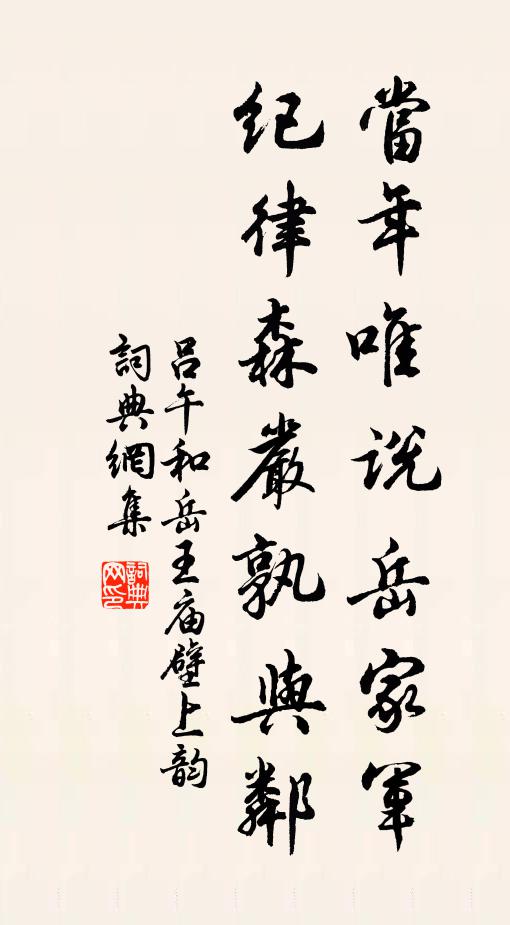 當年唯說岳家軍
紀律森嚴孰與鄰
呂午和岳王庙壁上韵
詞典網集
詞典网印